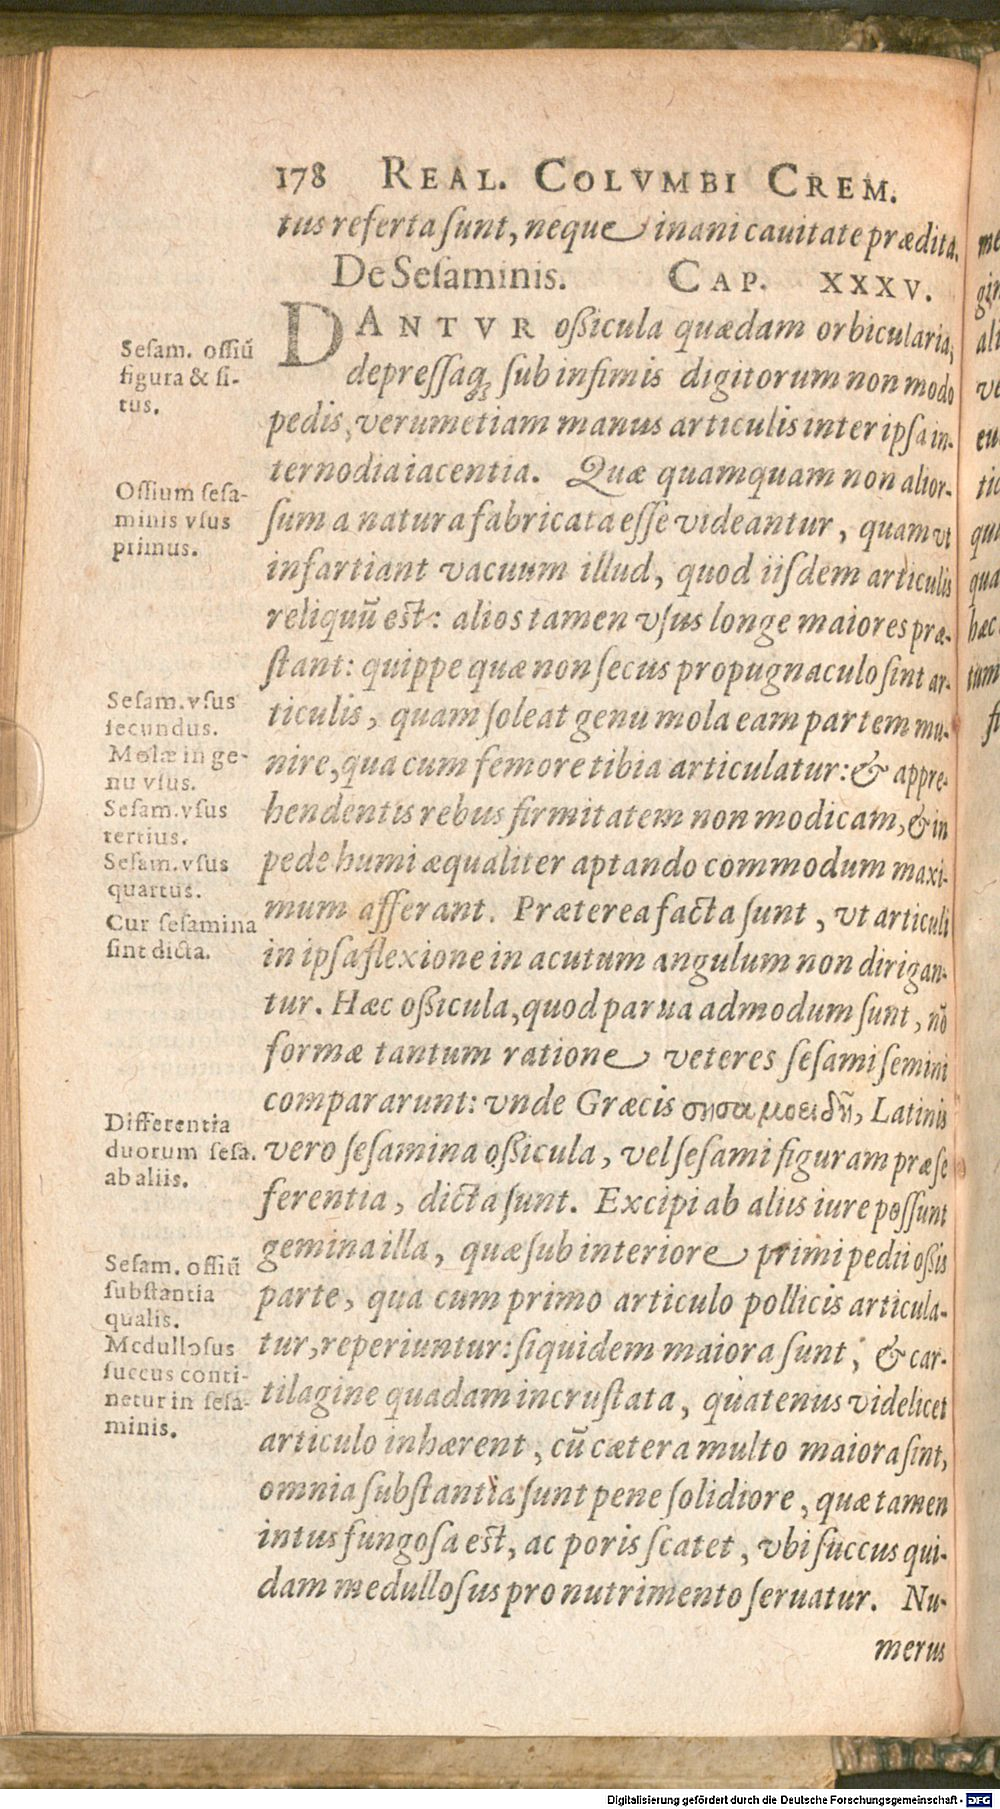 178 REAL. COLVMBI CREM.
tus referta ſunt, neque inani cauitate prædita.
De Seſaminis. CAP. XXXV.
DANTVR oſsicula quædam orbicularia,
depreſſaq; ſub infimis digitorum non modo
pedis, verumetiam manus articulis inter ipſa in-
ternodia iacentia. Quæ quamquam non alior-
ſum a natura fabricata eſſe videantur, quam vt
infartiant vacuum illud, quod iiſdem articulis
reliquũ est: alios tamen vſus longe maiores præ-
ſtant: quippe quæ non ſecus propugnaculo ſint ar-
ticulis, quam ſoleat genu mola eam partem mu-
nire, qua cum femore tibia articulatur: & appre-
hendentis rebus firmitatem non modicam, & in
pede humi æqualiter aptando commodum maxi-
mum afferant. Præterea facta ſunt, vt articuli
in ipſa flexione in acutum angulum non dirigan-
tur. Hæc oſsicula, quod parua admodum ſunt, nõ
formæ tantum ratione veteres ſeſami ſemini
compararunt: vnde Græcis σησαμοειδῆ, Latinis
vero ſeſamina oſsicula, vel ſeſami figuram præſe
ferentia, dicta ſunt. Excipi ab aliis iure poſſunt
gemina illa, quæ ſub interiore primi pedii oſsis
parte, qua cum primo articulo pollicis articula-
tur, reperiuntur: ſiquidem maiora ſunt, & car-
tilagine quadam incruſtata, quatenus videlicet
articulo inhærent, cũ cætera multo maiora ſint,
omnia ſubſtantia ſunt pene ſolidiore, quæ tamen
intus fungoſa est, ac poris ſcatet, vbi ſuccus qui-
dam medulloſus pro nutrimento ſeruatur. Nu-
merus
Seſam. oſſiũ
figura & ſi-
tus.
Oſſium ſeſa-
minis vſus
primus.
Seſam. vſus
ſecundus.
Molæ in ge-
nu vſus.
Seſam. vſus
tertius.
Seſam. vſus
quartus.
Cur ſeſamina
ſint dicta.
Differentia
duorum ſeſa.
ab aliis.
Seſam. oſſiũ
ſubſtantia
qualis.
Medulloſus
ſuccus conti-
netur in ſeſa-
minis.
Digitalisierung gefördert durch die Deutsche Forschungsgemeinschaft - DFG